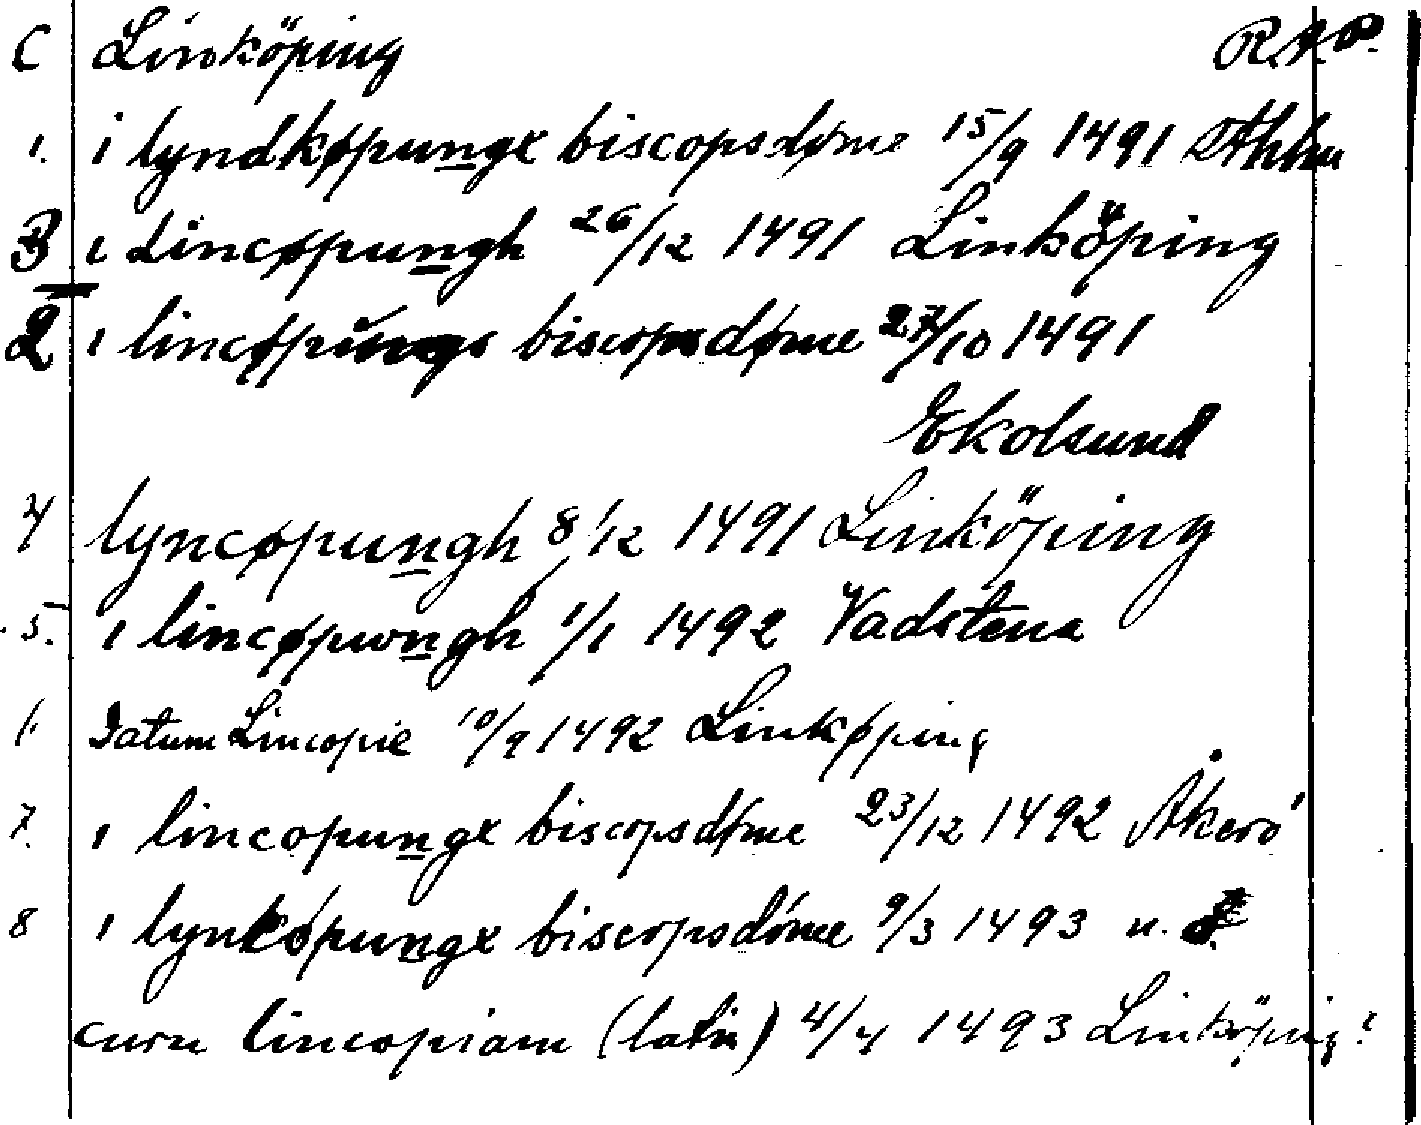 C Linköping RAP.
1. i lyndkøpungx biscopsdøme 15/9 1491 Sthlm
3 i Lincøpungh 26/12 1491 Linköping
2 i lincøpungs biscopsdøme 27/10 1491
Ekolsund
4 lyncøpungh 8/12 1491 Linköping
5. i lincøpwngh 1/1 1492 Vadstena
6 Datum Lincopie 10/9 1492 Linkøping
7. i lincopungx biscopsdøme 23/12 1492 Åkerö
8 i lynkøpungx biscopsdøme 9/3 1493 u.
lincopiam (latin) 4/4 1493 Linköping